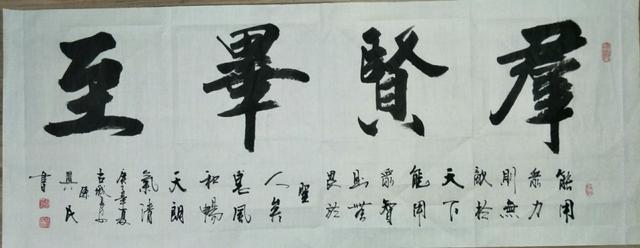 羣賢畢至
能用
衆力
則無
敵於
天下
能用
衆智
則無
畏於
聖
人矣
惠風
和暢
天朗
氣清
庚子年夏
古城
興民
書